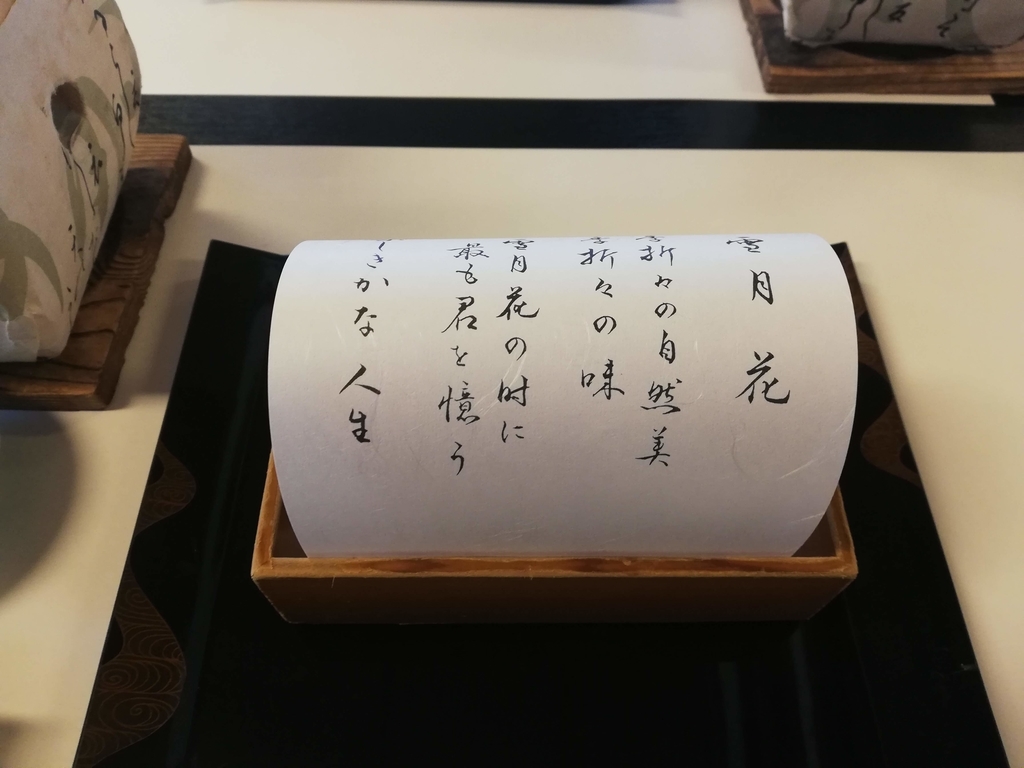 雪月花
季折々の自然美
季折々の味
雪月花の時に
最も君を憶う
きかな人生